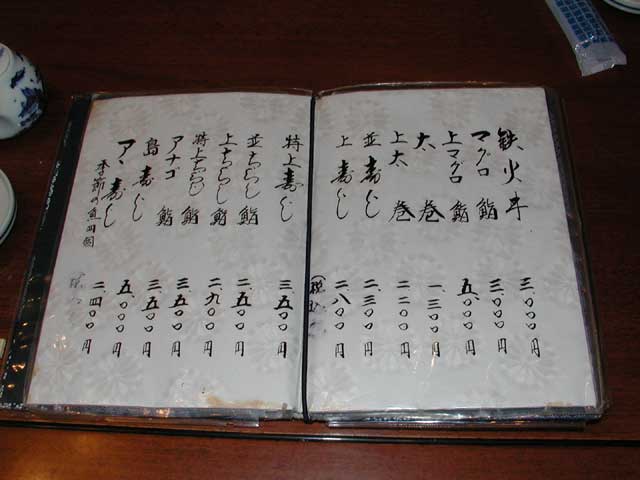 鉄火丼 三、〇〇〇円
マグロ鮨 三、〇〇〇円
上マグロ鮨 五、〇〇〇円
太巻 一、三〇〇円
上太巻 二、二〇〇円
並寿し 二、三〇〇円
上寿し 二、八〇〇円
特上寿し 三、五〇〇円
並ちらし鮨 二、五〇〇円
上ちらし鮨 二、九〇〇円
特上ちらし鮨 三、五〇〇円
アナゴ鮨 三、五〇〇円
島寿し 五、〇〇〇円
寿し 二、四〇〇円
季節の魚